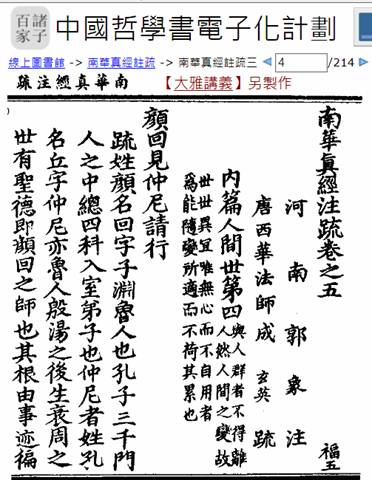 諸子百家
中國哲學書電子化計劃
線上圖書館 -> 南華真經註疏 -> 南華真經註疏三
4
/214
南華真經注疏
【大雅講義】另製作
南華真經注疏卷之五
福五
河南郭象注
唐西華法師成玄英疏
內篇人間世第四
與人群者不得離
人然人間之變故
世世異宜唯無心而不自用者
爲能隨變所適而不荷其累也
顏回見仲尼請行
疏姓顏名回字子淵魯人也孔子三千門
人之中總四科入室弟子也仲尼者姓孔
名丘字仲尼亦魯人殷湯之後生衰周之
世有聖德即顏回之師也其根由事迹徧